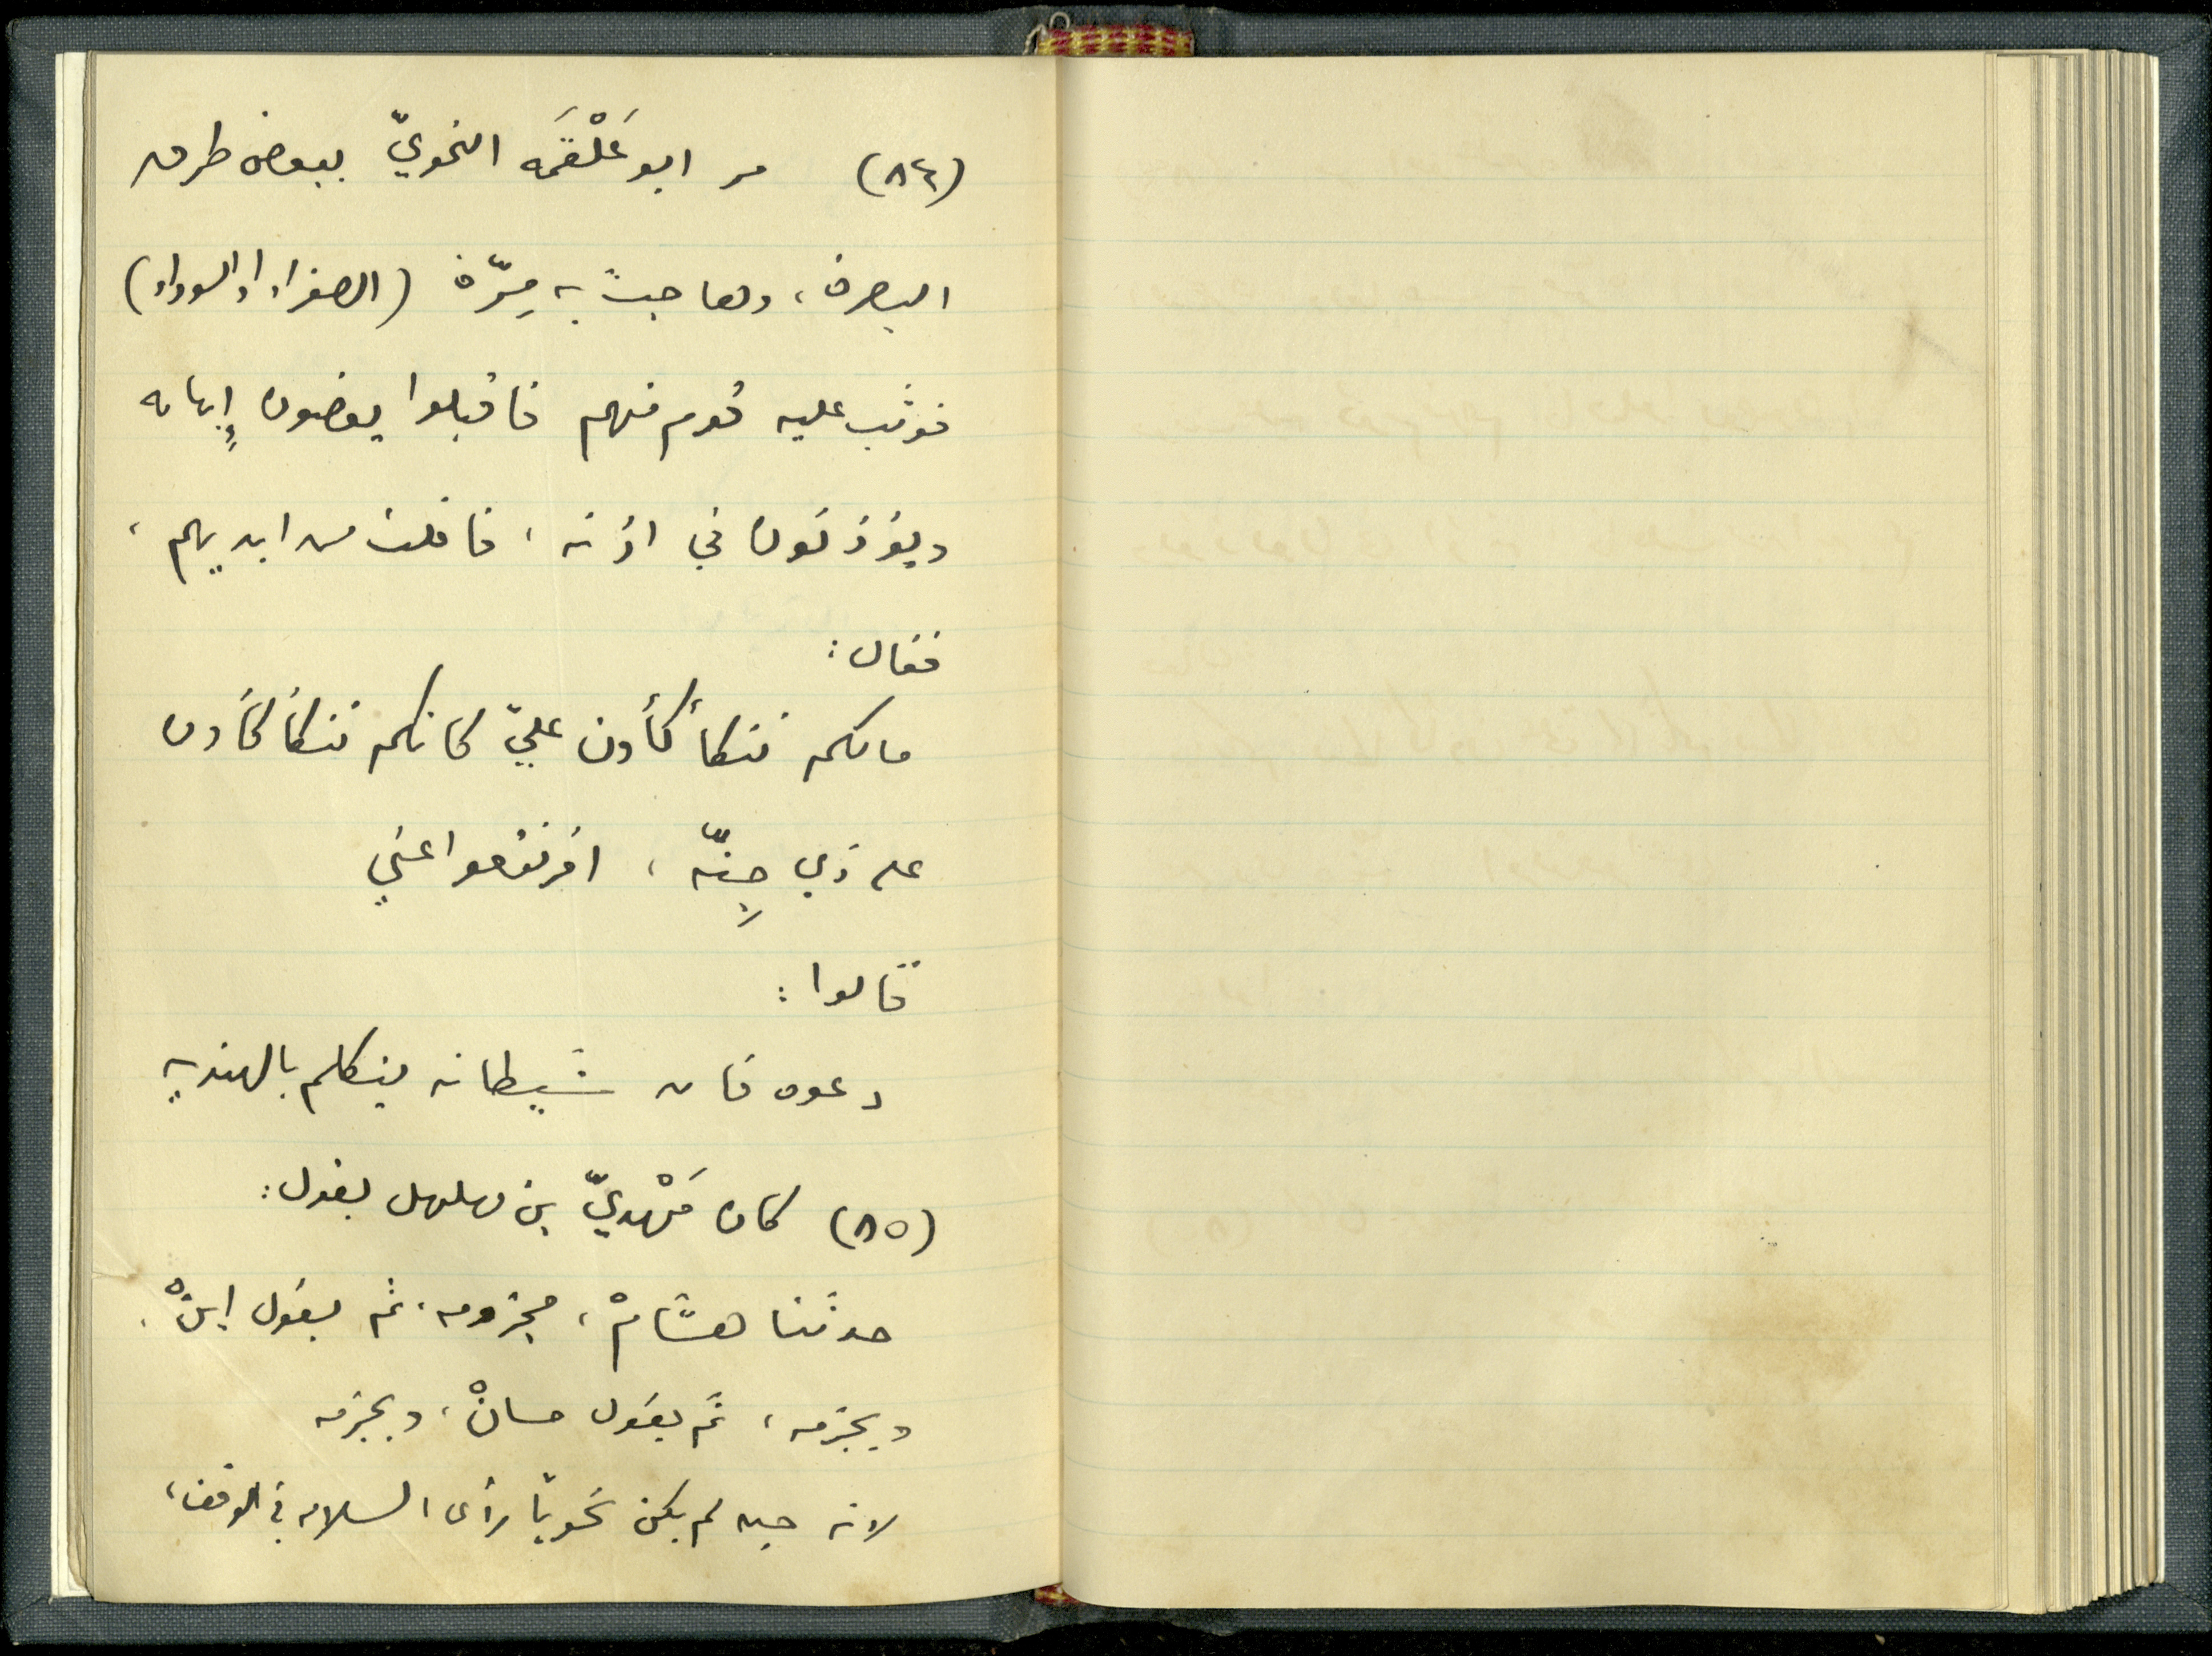 (٨٤) مر ابو عَلْقَمَه النحويّ ببعض طرق
البصرة، وهاجت به مِرّة (الصفراء او السوداء)
فوثب عليه قوم منهم فاقبلوا يعضون إبهامه
ويؤذنون في اذنه، فافلت من ايديهم،
فقال:
مالكم تتكأكأون عليّ كانكم تتكأكأون
على ذي جِنّه، افرنقعوا عني
قالوا:
دعوه فان شيطانه يتكلم بالهنديه
(٨٥) كان مَهْديّ بن مهلهل يقول:
حدثنا هشّامْ، مجزومه. ثم يقول ابنْ.
ويجزمه، ثم يقول حسانْ، ويجزمه
لانه حين لم يكن نحوياً رأى السلامه في الوقف،